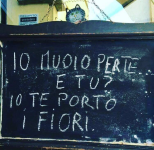 IO MUOIO PER TE
E TU?
IO TE PORTO
I FIORI.